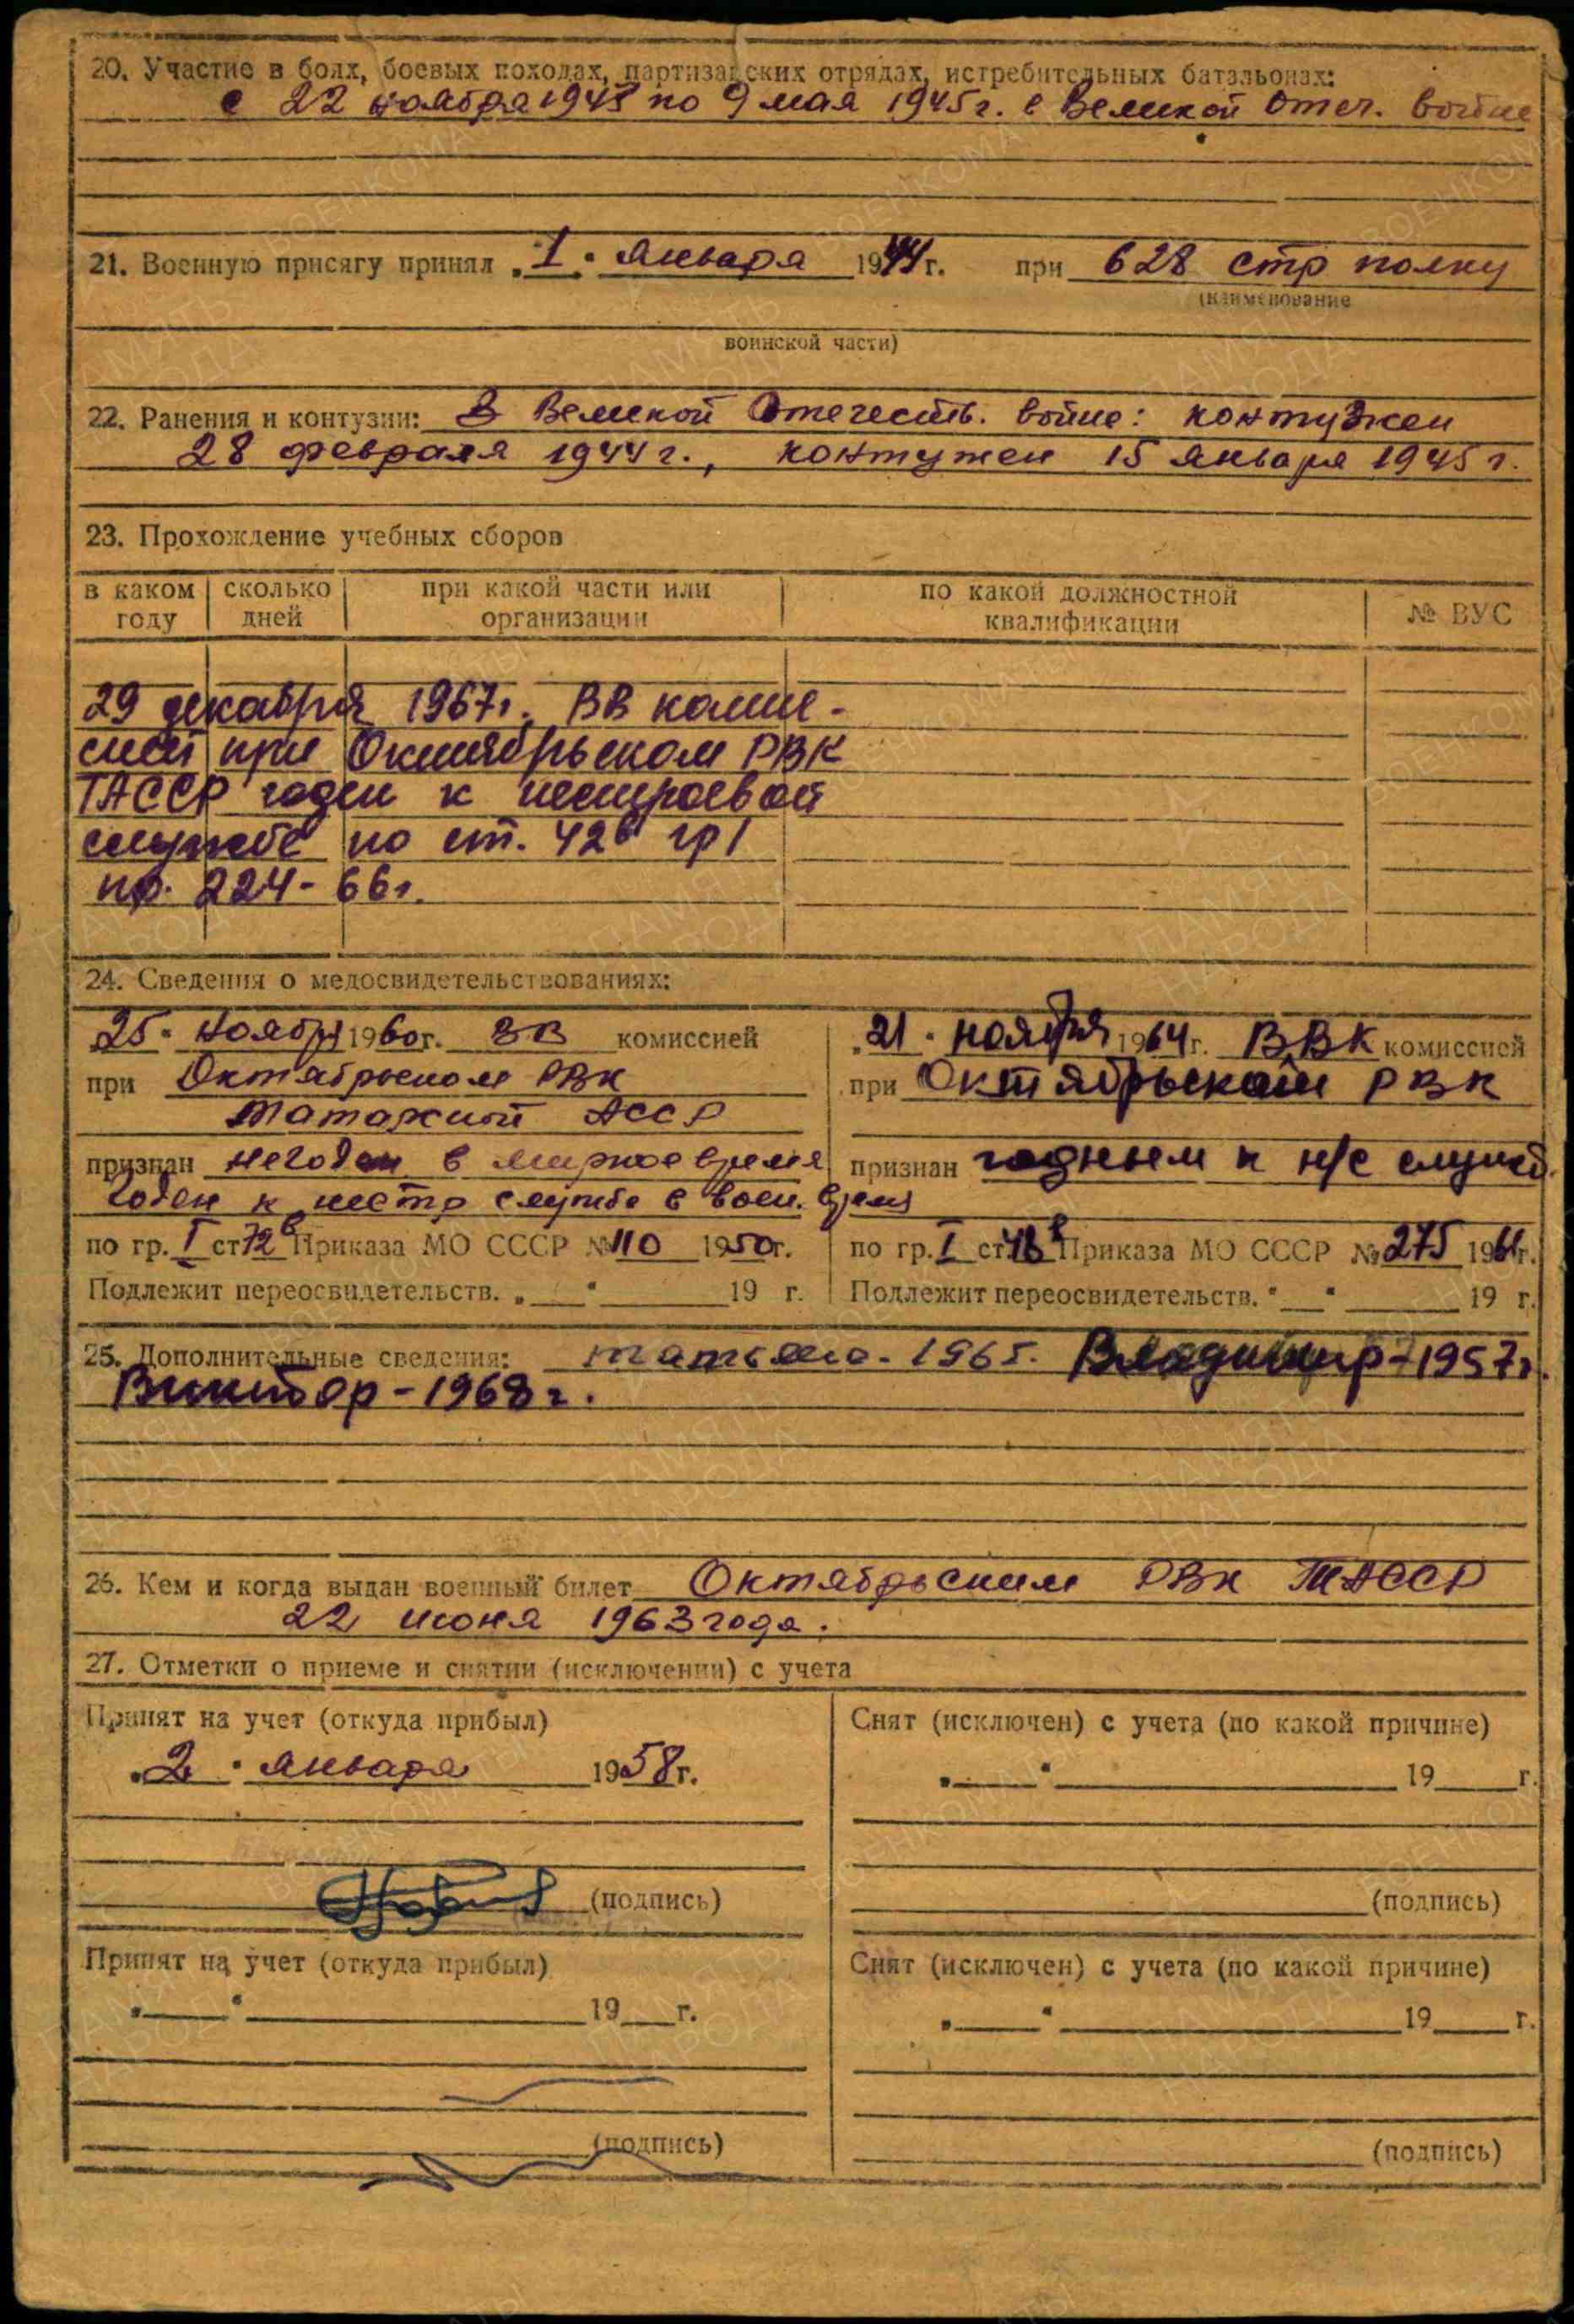 20. Участие в боях, боевых походах, партизанских отрядах, истребительных батальонах:
с 22 ноября 1943 по 9 мая 1945г. в Великой Отеч. войне
21. Военную присягу принял „1" января 1944г. при 628 стр полку
(наименование
воинской части)
22. Ранения и контузии: В Великой Отечеств. войне: контужен
28 февраля 1944г., контужен 15 января 1945г.
23. Прохождение учебных сборов
в каком году сколько дней при какой части или организации по какой должностной квалификации № ВУС
29 декабря 1967г. ВВ комис-
сией при Октябрьском РВК
ТАССР годен к нестроевой
службе по ст. 42в гр I
пр. 224-66г.
24. Сведения о медосвидетельствованиях:
25" ноября 1960г. ВВ комиссией
при Октябрьском РВК
Татарской АССР
признан негоден в мирное время
годен к нестр службе в воен. время
по гр. I ст 72в Приказа МО СССР № 110 1950г.
Подлежит переосвидетельств. „ " 19 г.
„21" ноября 1964г. ВВК комиссией
при Октябрьском РВК
признан годным к н/с служб.
по гр. I ст. Приказа МО СССР № 275 1961г.
Подлежит переосвидетельств. " " 19 г.
25. Дополнительные сведения: Татьяна-1965. Владимир-1957г.
Виктор-1968г.
26. Кем и когда выдан военный билет Октябрьским РВК ТАССР
22 июня 1963 года.
27. Отметки о приеме и снятии (исключении) с учета
Принят на учет (откуда прибыл)
„2" января 1958г.
(подпись)
Снят (исключен) с учета (по какой причине)
„ " 19 г.
(подпись)
Принят на учет (откуда прибыл)
„ " 19 г.
(подпись)
Снят (исключен) с учета (по какой причине)
„ " 19 г.
(подпись)
ПАМЯТЬ НАРОДА
ВОЕНКОМАТЫ